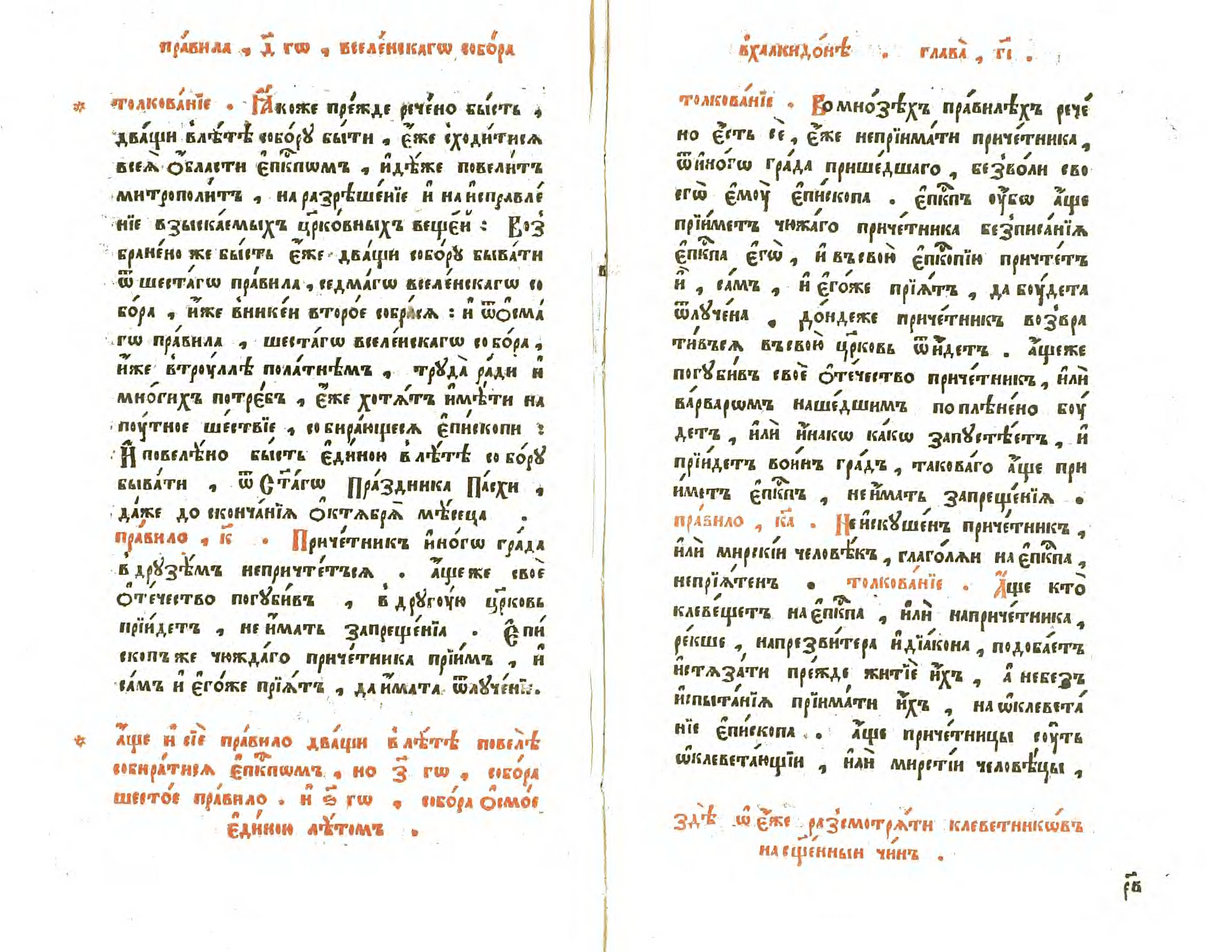 пра́вила , д҃ гѡ , вселе́нскагѡ собо́ра
* толкова́нїе . Ꙗ҆́коже пре́жде рече́но бы́сть ,
два́щи влѣ́тѣ собо́рꙋ бы́ти , є҆́же сходи́тися
всея̀ ѻ҆́бласти є҆пкпѡмъ , и҆дѣ́же повели́тъ
митрополи́тъ , на разрѣше́нїе и҆ на и҆справле́
нїе взыска́емыхъ цр҃ко́вныхъ веще́й : Воз
бране́но же бы́сть є҆́же два́щи собо́рꙋ быва́ти
ѿ шеста́гѡ пра́вила , седма́гѡ вселе́нскагѡ со
бо́ра , и҆́же вникеи второ́е собра́ся : и҆ ѿѻсма́
гѡ пра́вила , шеста́гѡ вселе́нскагѡ собо́ра ,
и҆́же втроу́ллѣ пола́тнѣмъ , трꙋда̀ ра́ди и҆
мно́гихъ потре́бъ , є҆́же хотя́тъ и҆мѣ́ти на
поу́тное ше́ствїе , собира́ющеся є҆пи́скопи :
И҆ повелѣ́но бы́сть є҆ди́ною влѣ́тѣ собо́рꙋ
быва́ти , ѿ Ст҃а́гѡ Пра́здника Па́схи ,
да́же до сконча́нїя ѻ҆ктября̀ мѣ́сеца .
пра́вило , к҃ . Приче́тникъ и҆но́гѡ гра́да
в дрꙋзѣ́мъ непричте́тъся . а҆́ще же своѐ
ѻ҆те́чество погꙋби́въ , в дрꙋгоу́ю цр҃ковь
прїи́детъ , не и҆́мать запреще́нїа . Є҆пи́
скопъ же чю́ждаго приче́тника прїи́мъ , и҆
са́мъ и҆ є҆го́же прїя́тъ , да и҆́мата ѿлꙋче́нїе.
* а҆́ще и҆ сїѐ пра́вило два́щи влѣ́тѣ повелѣ̀
собира́тися є҆пкпѡмъ , но з҃ гѡ , собо́ра
шесто́е пра́вило . и҆ ѕ҃ гѡ , собо́ра ѻ҆смо́е
є҆ди́ною лѣ́томъ .
вхалкидо́нѣ . глава̀ , г҃і .
толкова́нїе . Во мно́зѣхъ пра́вилѣхъ рече́
но є҆́сть сѐ , є҆́же непрїима́ти приче́тника ,
ѿ и҆но́гѡ гра́да прише́дшаго , безво́ли сво
егѡ̀ є҆моу̀ є҆пи́скопа . є҆пкпъ оу҆́бѡ а҆́ще
прїи́метъ чюжа́го приче́тника безписа́нїя
є҆пкпа є҆гѡ̀ , и҆ въ свою̀ є҆пкопїю причте́тъ
и҆̀ , са́мъ , и҆ є҆го́же прїя́тъ , да боу́дета
ѿлꙋче́на , до́ндеже приче́тникъ возвра
ти́вься въ свою̀ цр҃ковь ѿи́детъ . а҆́щеже
погꙋби́въ своѐ ѻ҆те́чество приче́тникъ , и҆лѝ
ва́рварѡмъ наше́дшимъ поплѣне́но боу́
детъ , и҆лѝ и҆на́кѡ ка́кѡ запꙋстѣ́етъ , и҆
прїи́детъ во и҆́нъ гра́дъ , такова́го а҆́ще при
и҆́метъ є҆пкпъ , не и҆́мать запреще́нїя .
пра́вило , к҃а . Не и҆скꙋше́нъ приче́тникъ ,
и҆лѝ ми́рскїи человѣ́къ , глаго́ляи на є҆пкпа ,
непрїя́тенъ . толкова́нїе . А҆́ще кто̀
клеве́щетъ на є҆пкпа , и҆лѝ на приче́тника ,
ре́кше , на презви́тера и҆ дїа́кона , подоба́етъ
и҆стяза́ти пре́жде житїѐ и҆́хъ , а҆ небезъ
и҆спыта́нїя прїима́ти и҆́хъ , на ѡ҆клевета́
нїе є҆пи́скопа . а҆́ще приче́тницы соу́ть
ѡ҆клевета́ющїи , и҆лѝ ми́рстїи человѣ́цы ,
здѣ̀ ѡ҆ є҆́же разсмотря́ти клеветникѡ́въ
на сщ҃е́нныи чи́нъ .
р҃в